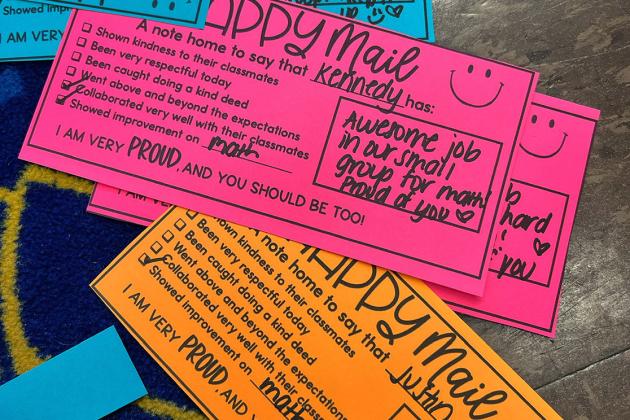 Showed imp
I AM VERY
HAPPY Mail
A note home to say that Kennedy has:
Shown kindness to their classmates
Been very respectful today
Been caught doing a kind deed
Went above and beyond the expectations
Collaborated very well with their classmates
Showed improvement on math
I AM VERY PROUD, AND YOU SHOULD BE TOO!
Awesome job
in our small
group for math!
Proud of you ♡
I AM
hard
! ♡
you
HAPPY Mail
A note home to say that Justin
Shown kindness to their classmates
Been very respectful today
Been caught doing a kind deed
Went above and beyond the expectations
Collaborated very well with their class
Showed improvement on math
I AM VERY PROUD, AND